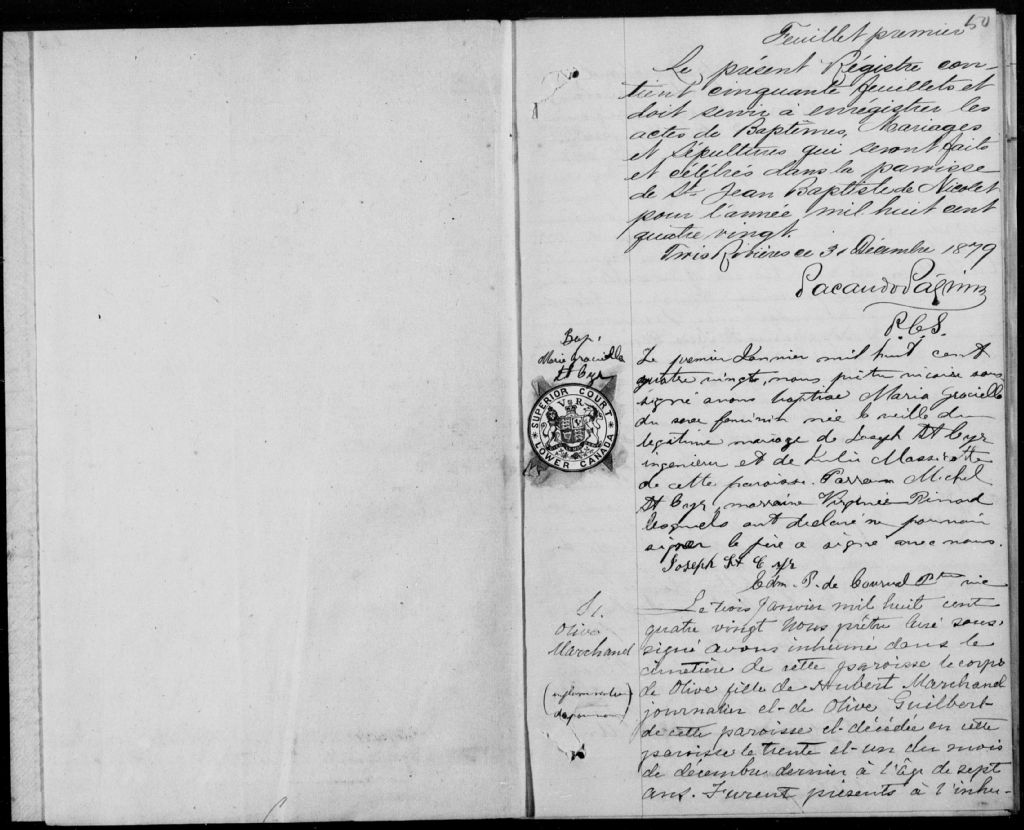 50
Feuillet premier
Le présent Régistre con-
tient cinquante feuillets et
doit servir à enrégistrer les
actes de Baptêmes, Mariages
et Sépultures qui seront faits
et célébrés dans la paroisse
de St. Jean Baptiste de Nicolet
pour l'année mil huit cent
quatre vingt.
Trois Rivières ce 31 Décembre 1879
P.C.S.
Bap.
Marie Graciella
St Cyr
SUPERIOR COURT
V R
LOWER CANADA
Le premier Janvier mil huit cent
quatre vingt, nous prêtre vicaire sous
signé avons baptisé Maria Graciella
du sexe féminin née la veille du
légitime mariage de Joseph St Cyr
ingénieur et de Massicotte
de cette paroisse. Parrain Michel
St Cyr, marraine Virginie
lesquels ont déclaré ne pouvoir
signer le père a signé avec nous.
Joseph St Cyr
Edm. P. de Courval Ptre vic
S1.
Olive
Marchand
Le trois Janvier mil huit cent
quatre vingt Nous prêtre Curé sous-
signé avons inhumé dans le
cimetière de cette paroisse le corps
de Olive fille de Hubert Marchand
journalier et de Olive Guilbert
de cette paroisse et décédée en cette
paroisse le trente et un du mois
de décembre dernier à l'âge de sept
ans. Furent présents à l'inhu-